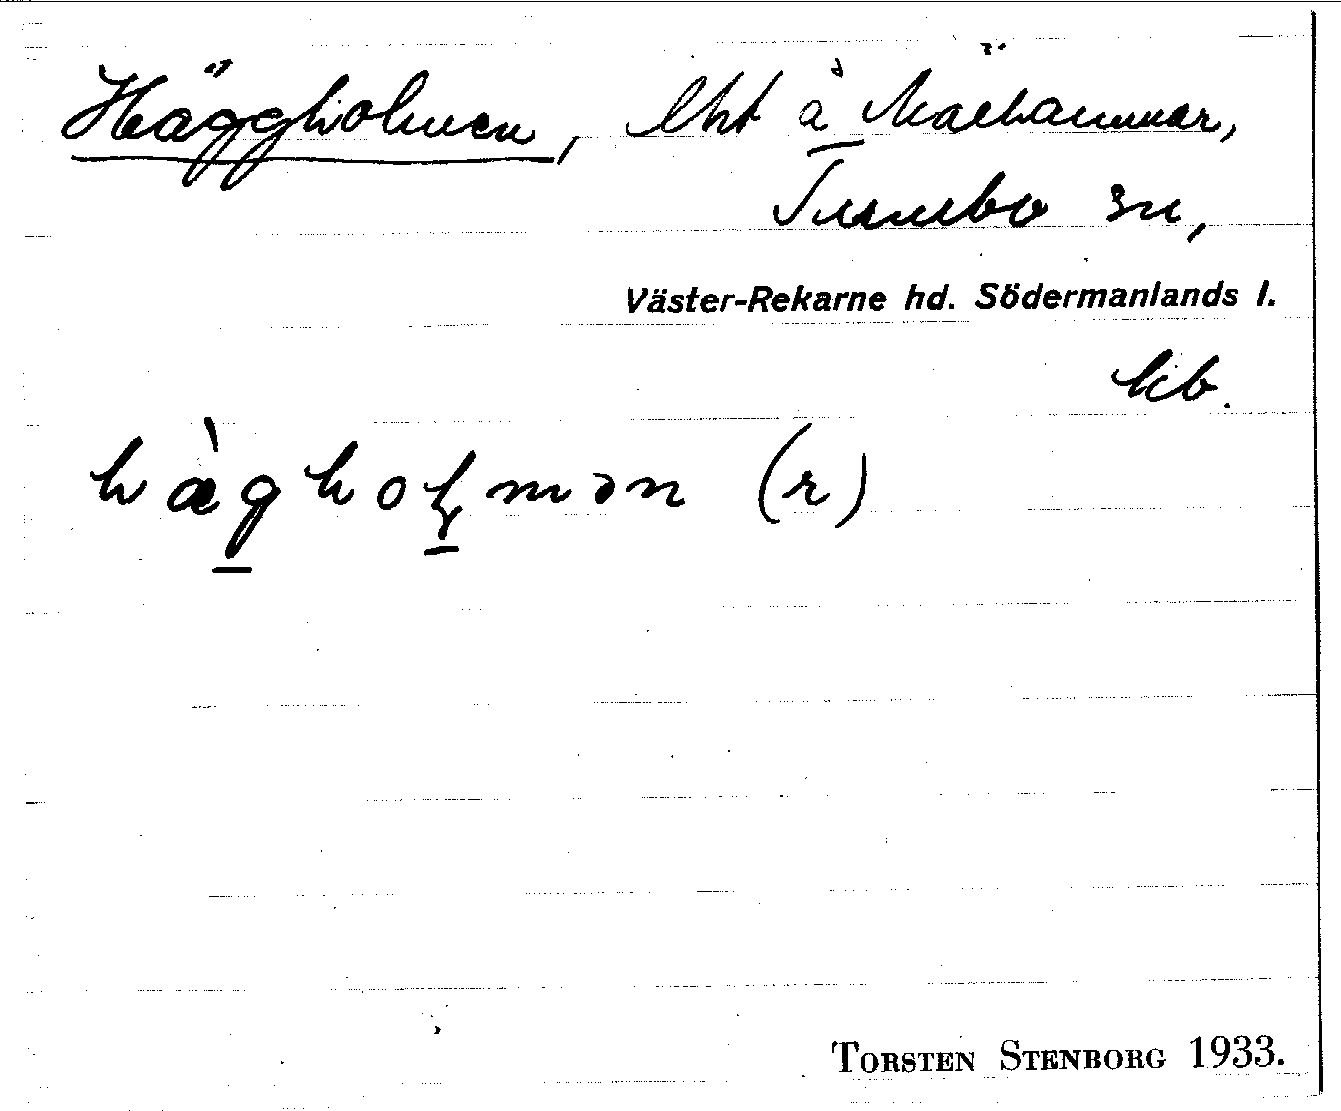 Häggholmen, lht å Mälhammar,
Tumbo sn,
Väster-Rekarne hd. Södermanlands l.
hæ̀gholmən (r)
TORSTEN STENBORG 1933.